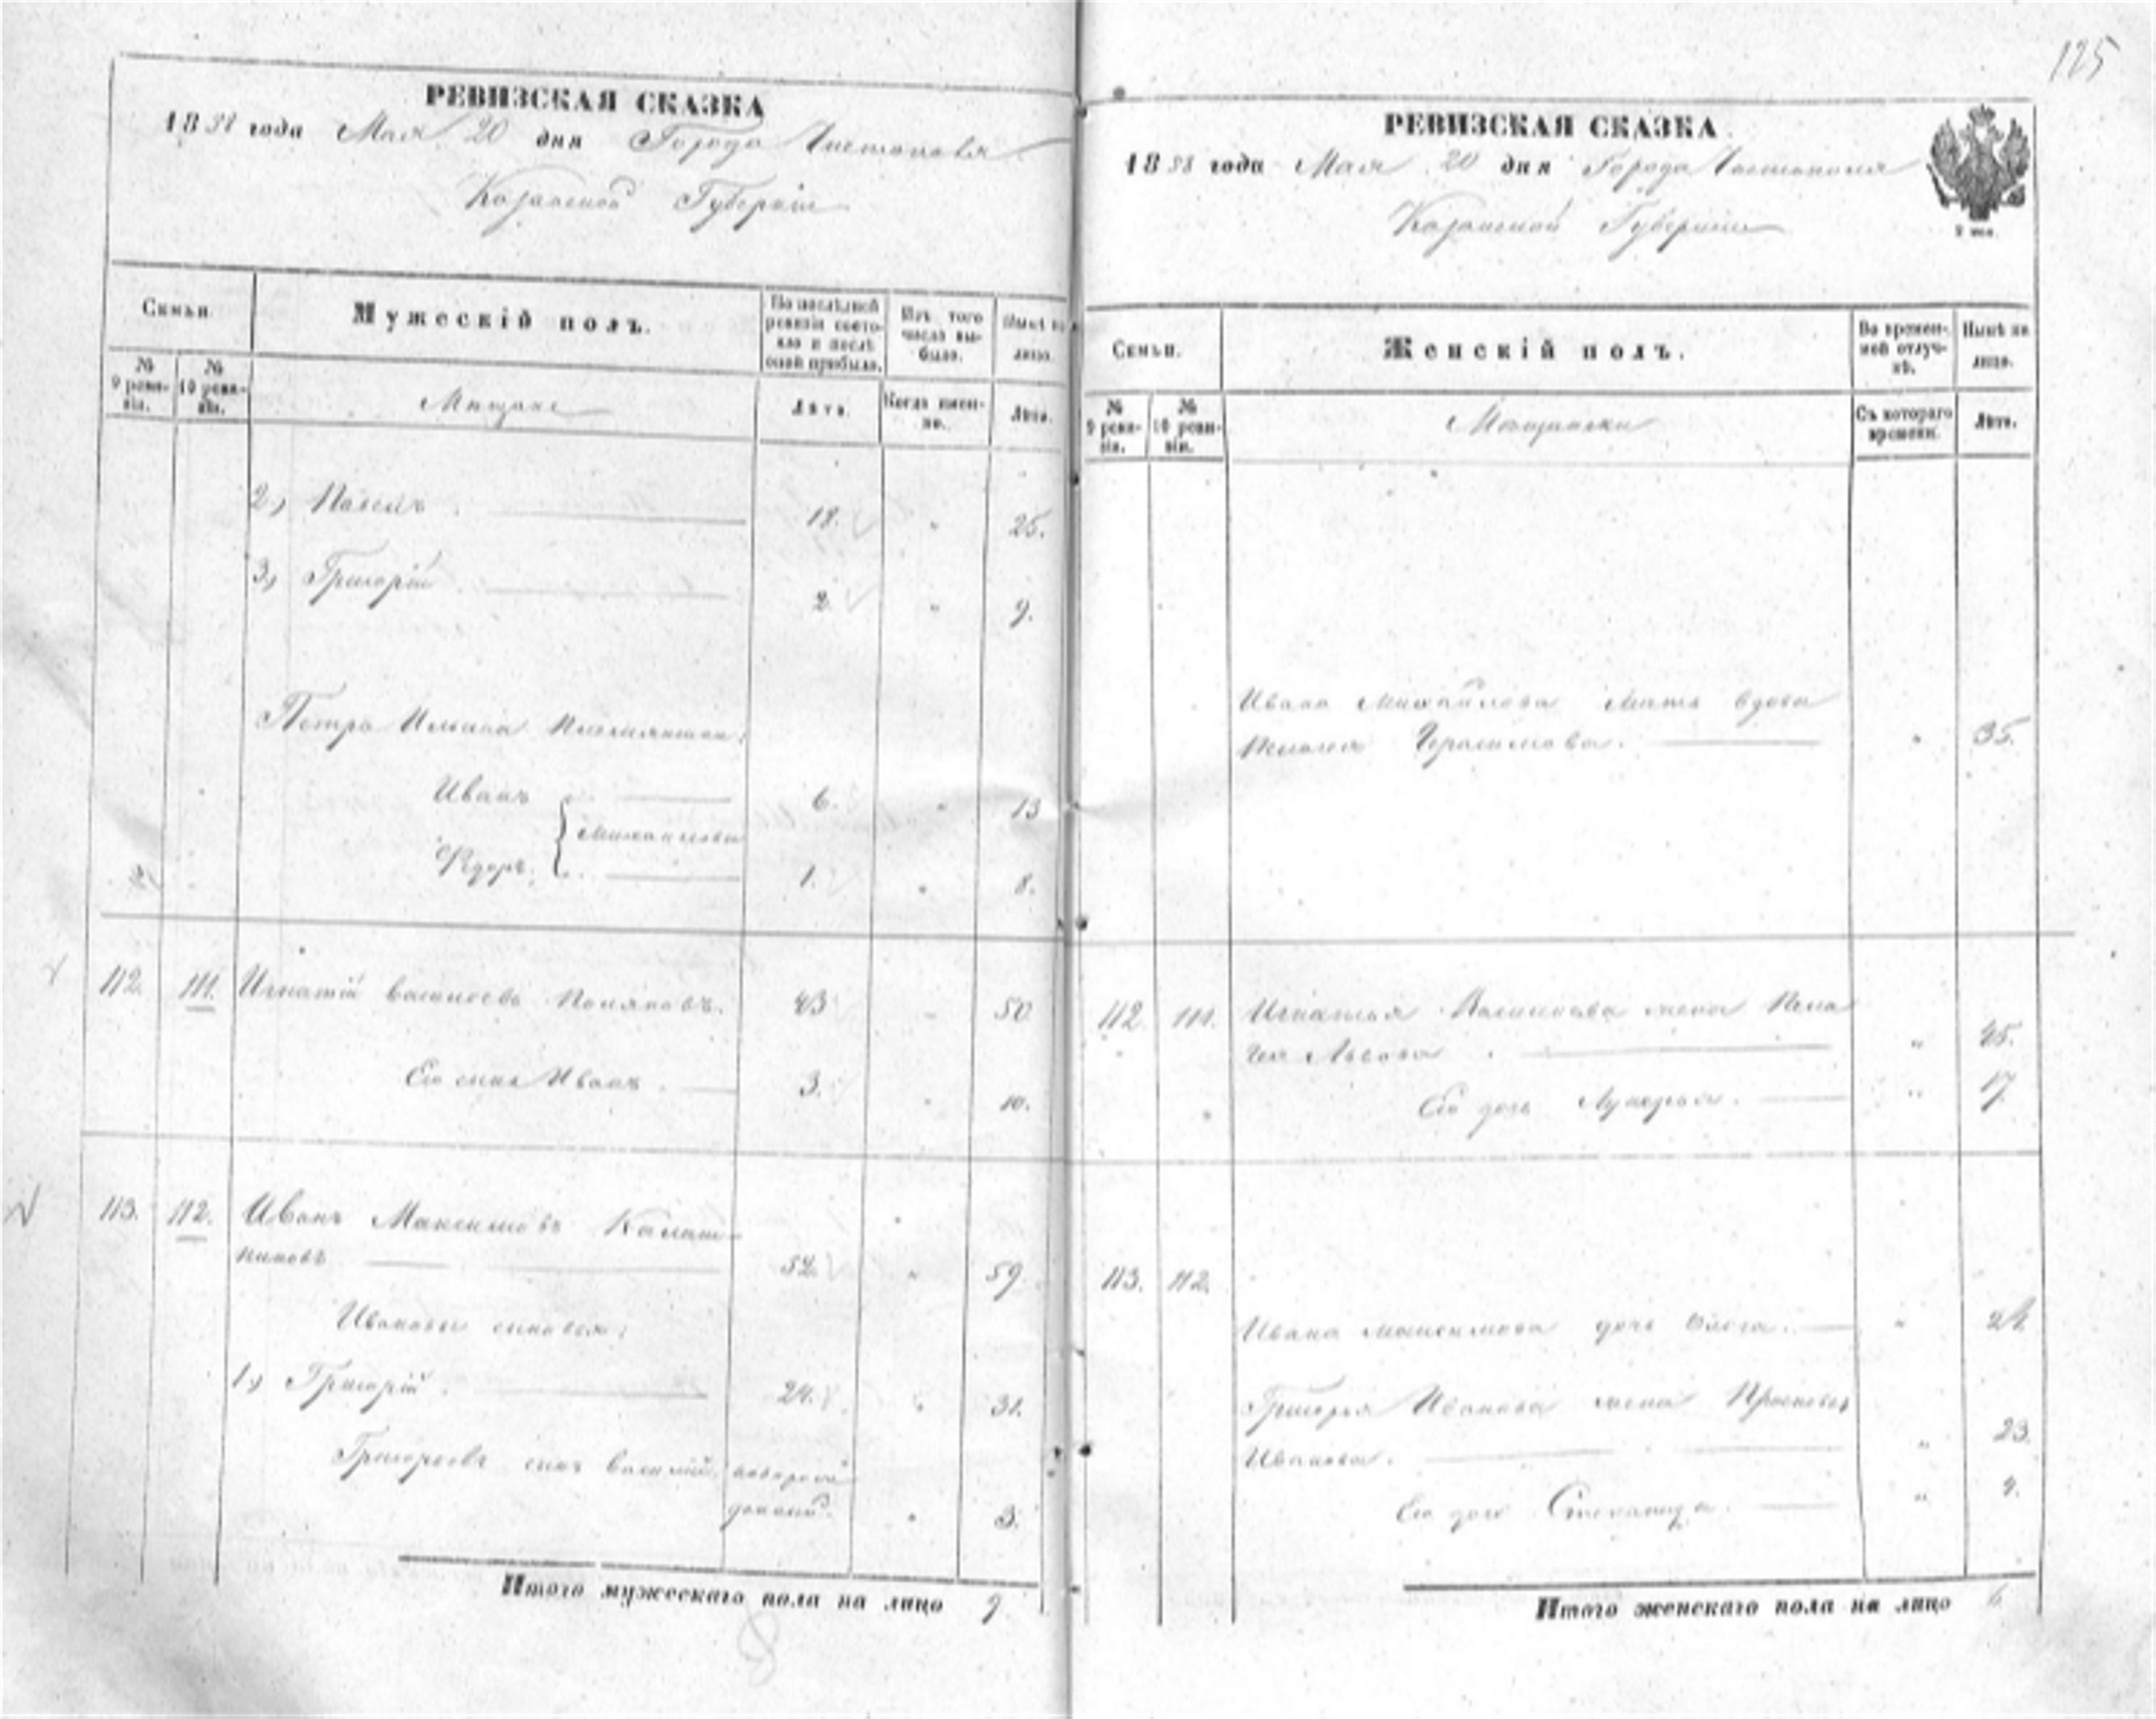 125
РЕВИЗСКАЯ СКАЗКА
1858 года Мая 20 дня Города Чистополя
Казанской Губернiи
Семьи.
Мужескiй полъ.
По послѣдней ревизiи состояло и послѣ оной прибыло.
Изъ того числа выбыло.
Нынѣ на лицо.
№ 9 ревизiи.
№ 10 ревизiи.
Мѣщане
Лѣта.
Когда именно.
Лѣта.
2, 18. " 25.
3, Григорiй 2 " 9.
Петра Ильина племянники:
Иванъ 6. " 13
Михайловы
Ѳедоръ 1. " 8.
112. 111. Игнатiй Васильевъ Поляковъ. 43 " 50
Его сынъ Иванъ. 3. " 10.
113. 112. Иванъ Максимовъ Калаш-
никовъ 52. " 59
Ивановы сыновья:
1, Григорiй. 24. " 31.
Григорьевъ сынъ Василiй.
" 3.
Итого мужескаго пола на лицо 9
РЕВИЗСКАЯ СКАЗКА
1858 года Мая 20 дня Города Чистополя
Казанской Губернiи
Семьи.
Женскiй полъ.
Во временной отлучкѣ.
Нынѣ на лицо.
№ 9 ревизiи.
№ 10 ревизiи.
Мѣщанки
Съ котораго времени.
Лѣта.
Ивана Михайлова мать вдова
Герасимова. " 35.
112 111. Игнатья Васильева жена Пела
гея Львова. " 45.
Его дочь Лукерья. " 17.
113. 112.
Ивана Максимова дочь "
Григорья Иванова жена Прасковья
Иванова. " 23.
Его дочь Степанида. " 4.
Итого женскаго пола на лицо 6